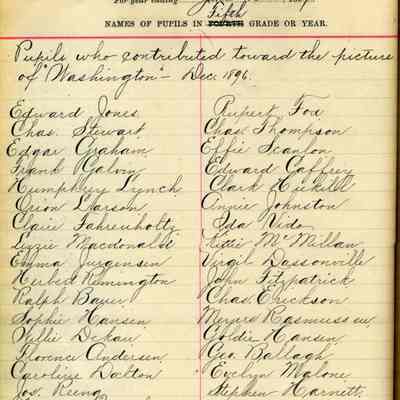 For year ending
Fifth
NAMES OF PUPILS IN FOURTH GRADE OR YEAR.
Pupils who contributed toward the picture
of "Washington" - Dec. 1896.
Edward Jones.
Chas. Stewart.
Edgar Graham.
Frank Galvin
Humphrey Lynch
Orion Larson
Claire Fahrenholtz
Lizzie Macdonald
Emma Jurgensen
Herbert Remington
Ralph Bauer
Sophie Hansen
Nellie Dekau
Florence Andersen
Caroline Dalton
Jos. Reeng
Rupert Fox
Chas. Thompson
Effie Scanlon
Edward Gaffrey
Clark Hickill
Annie Johnston
Ida Vido
Kittie McMillan
Virgil Dassonville
John Fitzpatrick
Chas. Erickson
Meyers Rasmussen
Goldie Hansen
Geo. Ballagh
Evelyn Malone
Stephen Harnett.